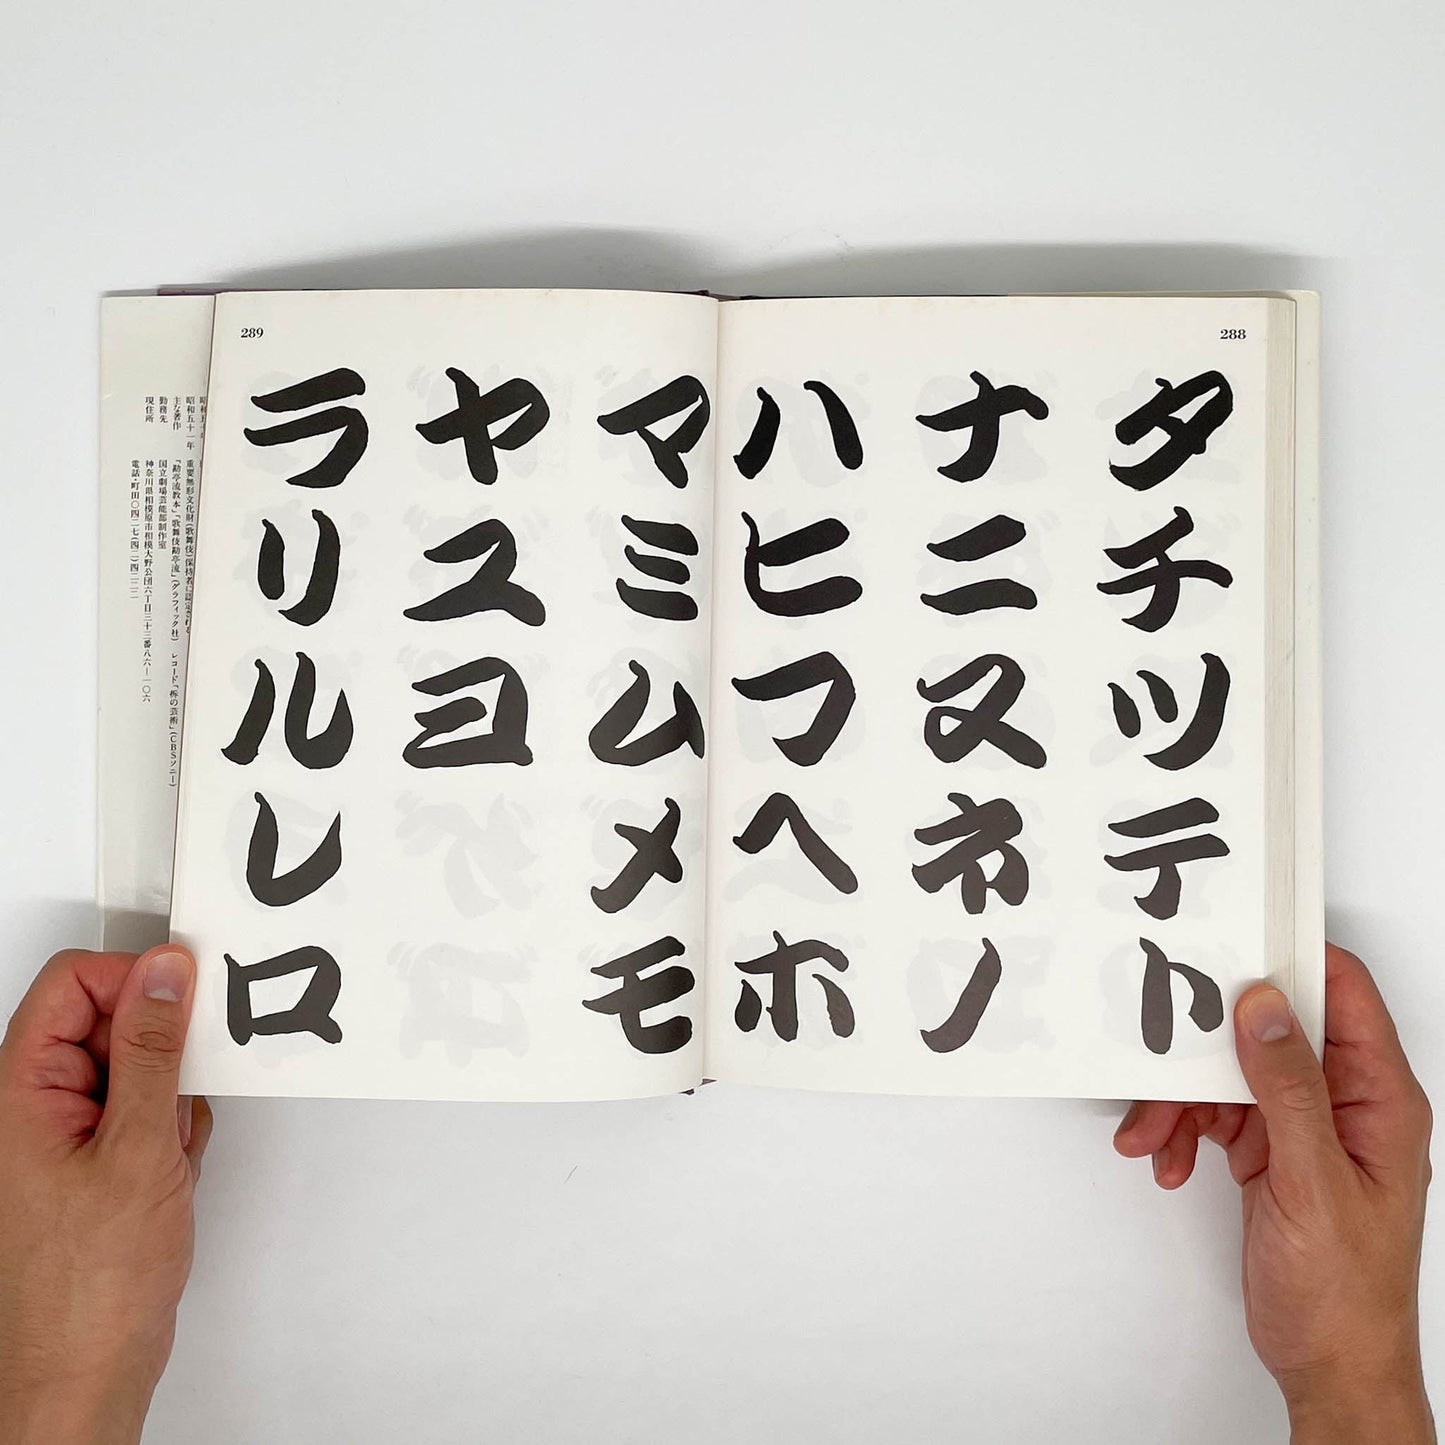 288
タチツテト
ナニヌネノ
ハヒフヘホ
289
マミムメモ
ヤユヨ
ラリルレロ
昭和五十一年 重要無形文化財(歌舞伎)保持者に認定される
主な著作 「勘亭流教本」「歌舞伎勘亭流」(グラフィック社) レコード「柝の芸術」(CBSソニー)
勤務先 国立劇場芸能部制作室
現住所 神奈川県相模原市相模大野公団六丁目三十三番八六―一〇六
電話・町田〇四二七(四二)